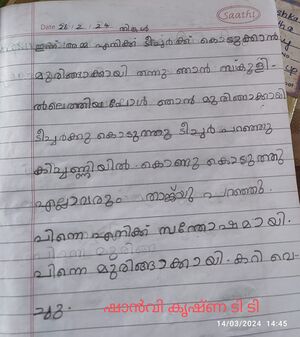 Saathi
Date 26/2/24 തിങ്കൾ
ഇന്ന് അമ്മ എനിക്ക് ടീച്ചർക്ക് കൊടുക്കാൻ
മുരിങ്ങാക്കായി തന്നു ഞാൻ സ്കൂളി-
ൽലെത്തിയപ്പോൾ ഞാൻ മുരിങ്ങാക്കായി
ടീച്ചർക്കു കൊടുത്തു ടീച്ചർ പറഞ്ഞു
കിച്ചണ്ണിയിൽ കൊണ്ടു കൊടുത്തു
എല്ലാവരും താങ്ക്യു പറഞ്ഞു.
പിന്നെ എനിക്ക് സന്തോഷമായി.
പിന്നെ മുരിങ്ങാക്കായി കറി വെ-
ച്ചു.
ഷാൻവി കൃഷ്ണ ടി ടി
14/03/2024 14:45